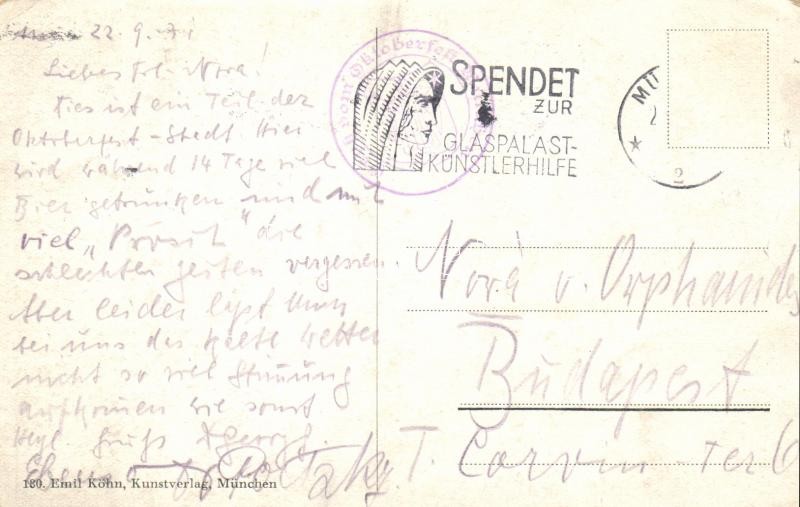 22. 9. 31
Liebes Frl. Nora!
Dies ist ein Teil der
Oktoberfest-Stadt. Hier
wird während 14 Tage viel
Bier getrunken und mit
viel „Prosit" die
schlechten Zeiten vergessen.
Aber leider läßt
bei uns das kalte Wetter
nicht so viel Stimmung
aufkommen wie sonst
Herzl. Gruß
180. Emil Köhn, Kunstverlag, München
vom Oktoberfest
SPENDET
ZUR
GLASPALAST-
KÜNSTLERHILFE
MÜ
2
Nora v. Orphanides
Budapest
T. Corvin ter 6